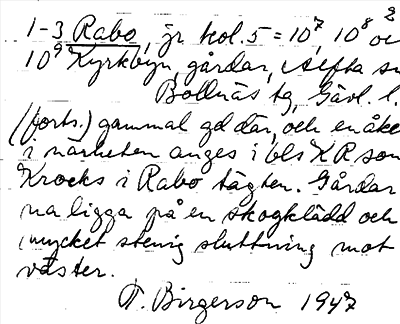 1-3 Rabo, jr kol. 5 = 10⁷, 10⁸ o 2
10⁹ Kyrkbyn, gårdar, Alfta sn
Bollnäs tg, Gävl. l.
(forts.) gammal gd där, och en åke
i närheten anges i bls KR som
Krocks i Rabo tägten. Gårdar
na ligga på en skogklädd och
mycket stenig sluttning mot
väster.
T. Birgerson 1947